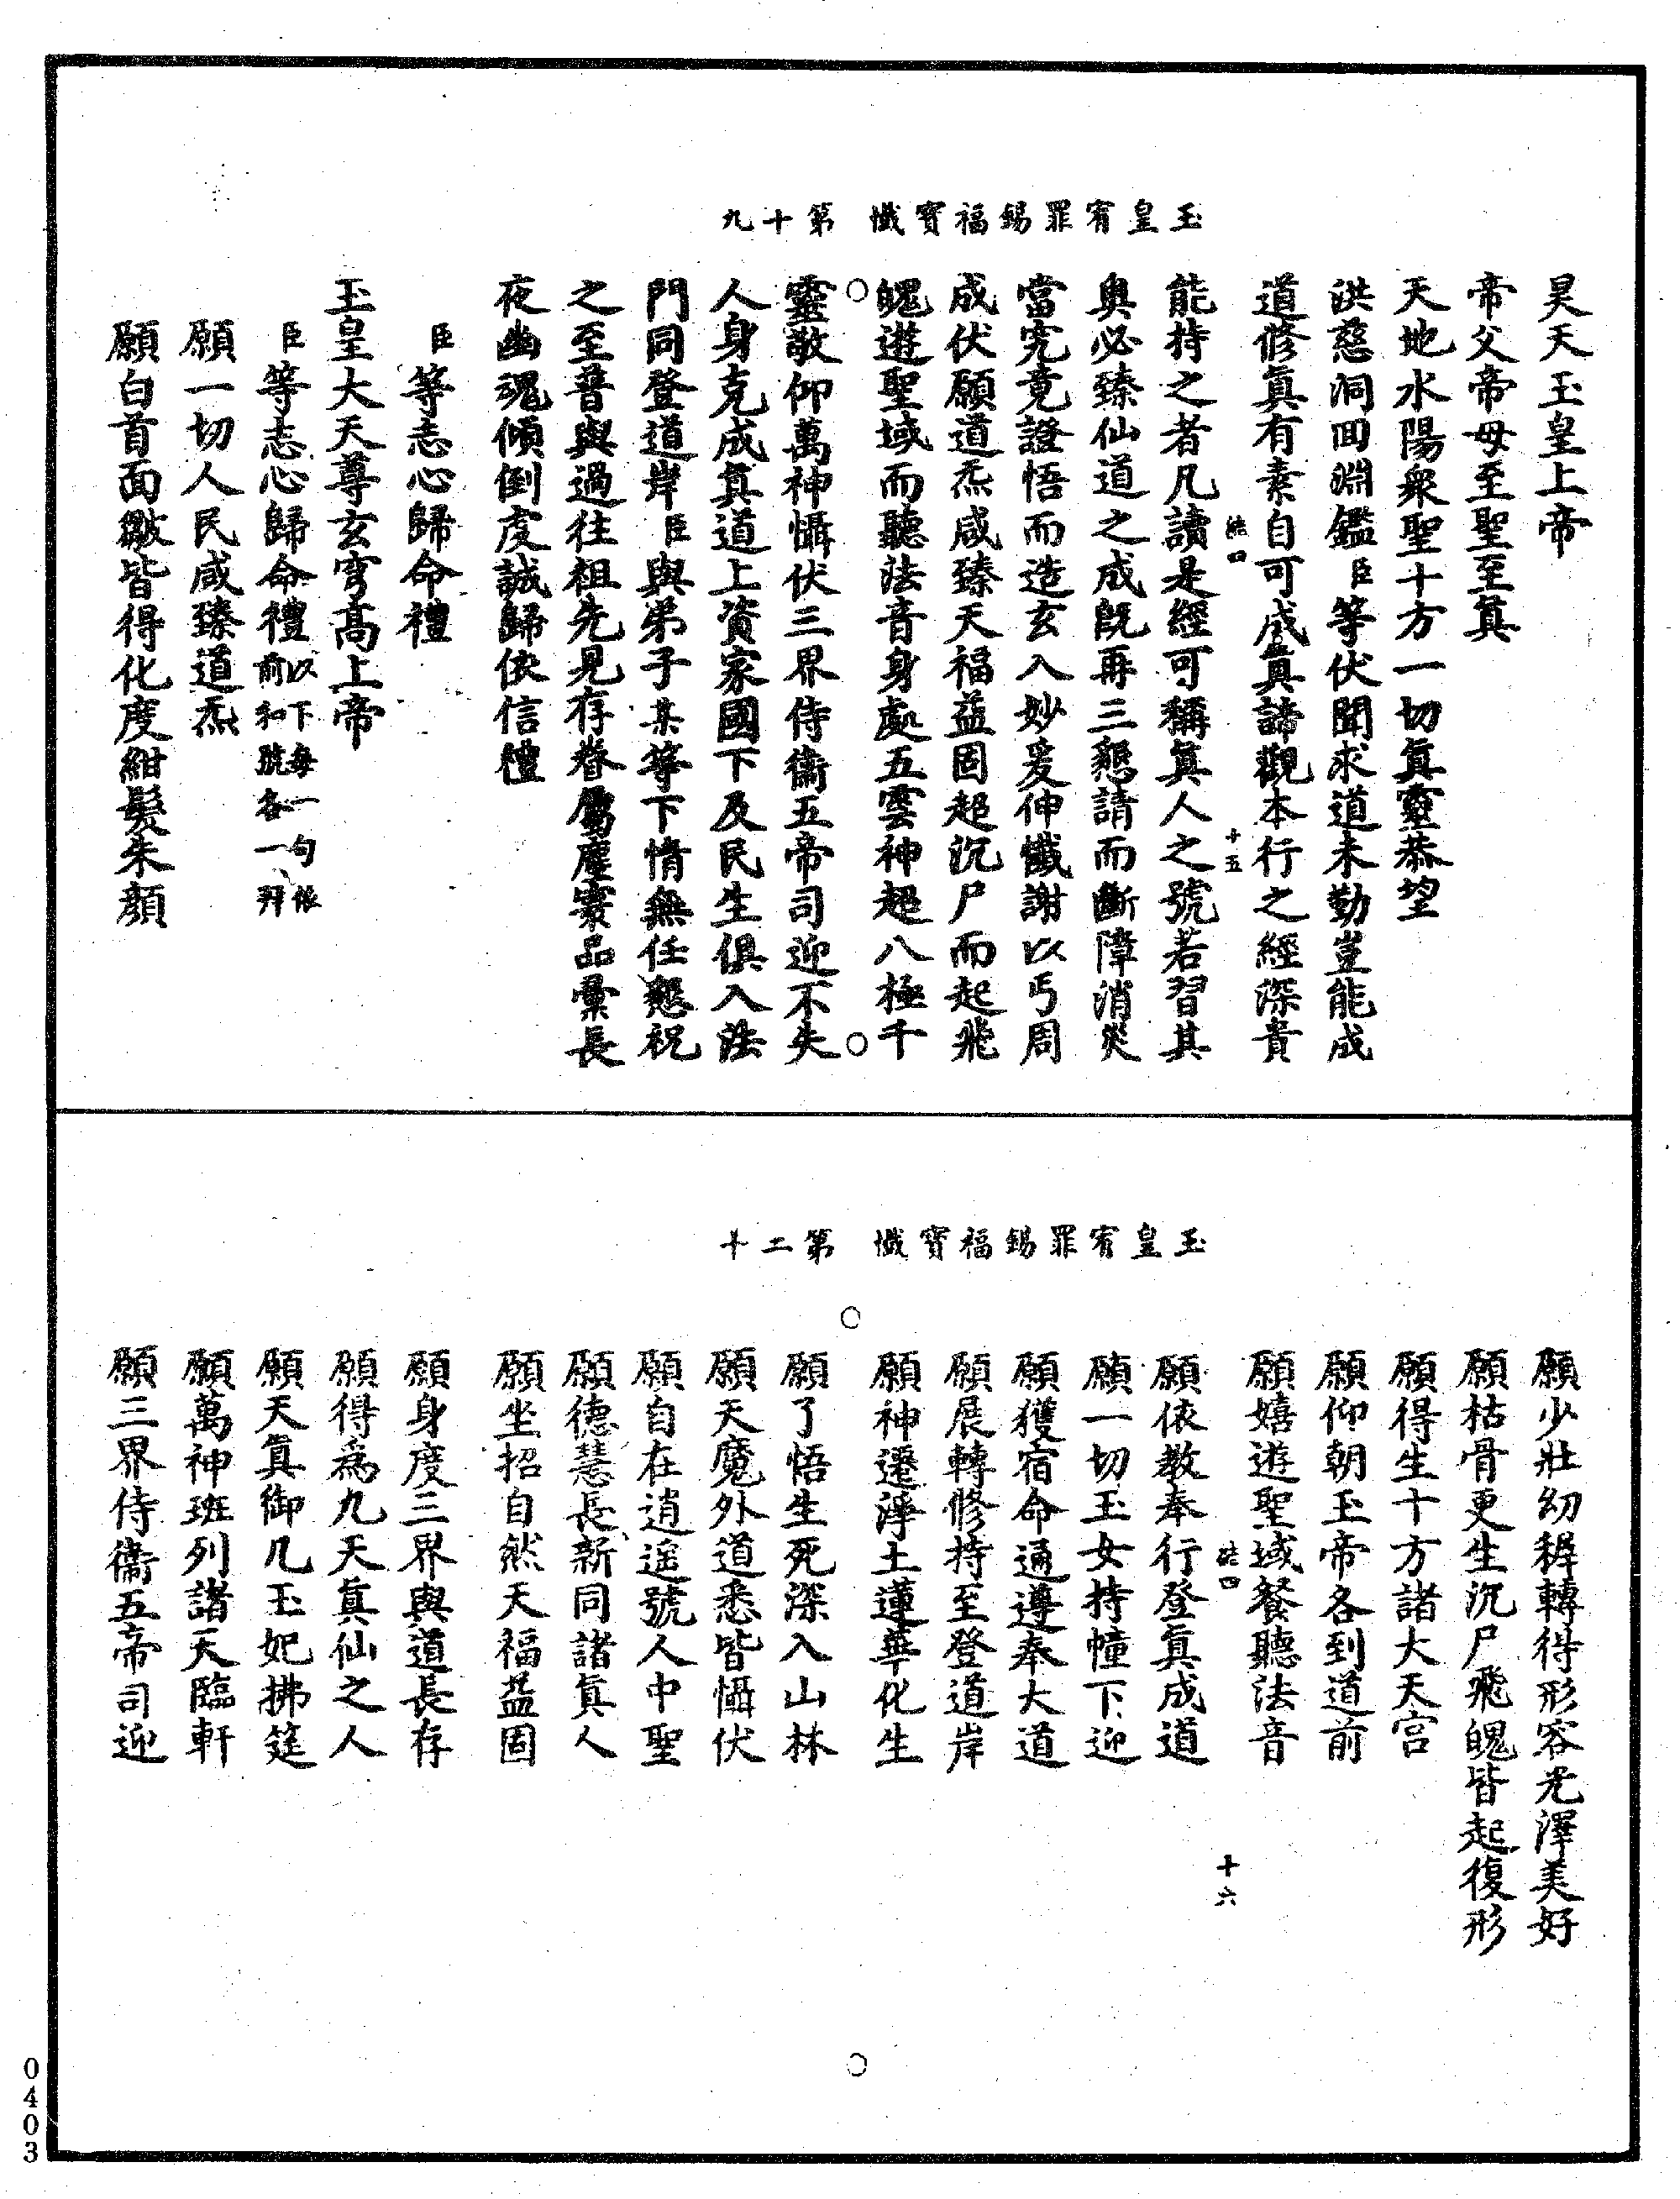 玉皇宥罪錫福寶懺　第十九
昊天玉皇上帝
帝父帝母至聖至真
天地水陽衆聖十方一切真靈恭望
洪慈洞回淵鑑臣等伏聞求道未勤豈能成
道修真有素自可成真諦觀本行之經深貴
法四　十五
能持之者凡讀是經可稱真人之號若習其
奥必臻仙道之成既再三懇請而斷障消災
當究竟證悟而造玄入妙爰伸懺謝以丐周
成伏願道炁咸臻天福益固起沉尸而起飛
魄遊聖域而聽法音身處五雲神超八極千
靈敬仰萬神懾伏三界侍衞五帝司迎不失
人身克成真道上資家國下及民生俱入法
門同登道岸臣與弟子某等下情無任懇祝
之至普與過往祖先見存眷屬塵寰品彙長
夜幽魂傾倒虔誠歸依信禮
臣等志心歸命禮
玉皇大天尊玄穹高上帝
臣等志心歸命禮以下每一句依前和號各一拜
願一切人民咸臻道炁
願白首面皺皆得化度紺髮朱顔
玉皇宥罪錫福寶懺　第二十
願少壯幼稺轉得形容光澤美好
願枯骨更生沉尸飛魄皆起復形
願得生十方諸大天宫
願仰朝玉帝各到道前
願嬉遊聖域餐聽法音
法四　十六
願依教奉行登真成道
願一切玉女持幢下迎
願獲宿命通遵奉大道
願展轉修持至登道岸
願神遷淨土蓮華化生
願了悟生死深入山林
願天魔外道悉皆懾伏
願自在逍遥號人中聖
願德慧長新同諸真人
願坐招自然天福益固
願身度三界與道長存
願得爲九天真仙之人
願天真御几玉妃拂筵
願萬神班列諸天臨軒
願三界侍衞五帝司迎
0403